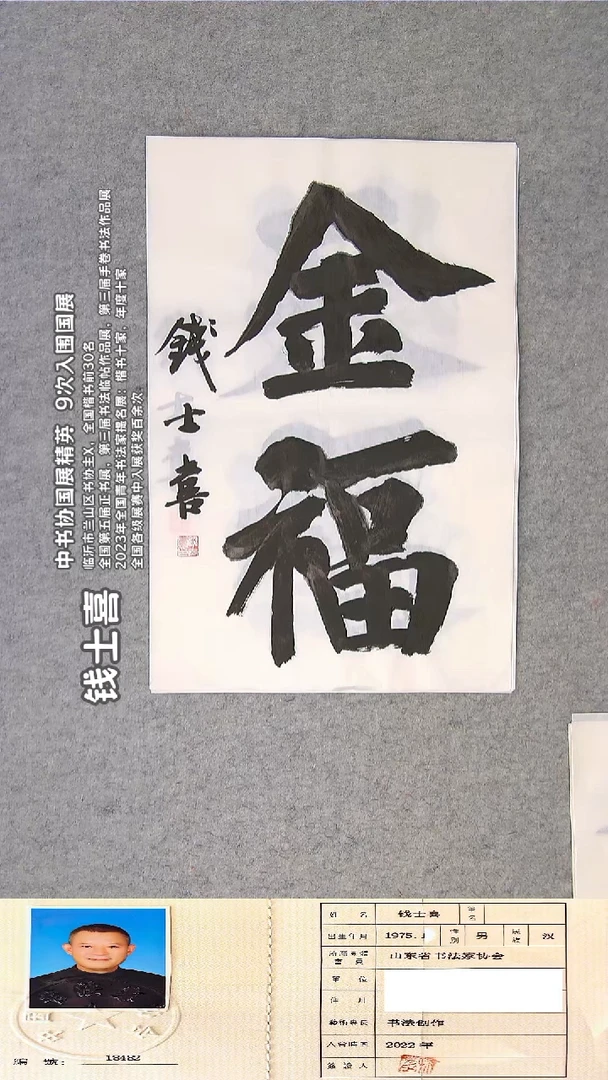 金福
錢士喜
钱士喜
中书协国展精英 9次入围国展
临沂市兰山区书协主X，全国楷书前30名
全国第五届正书展，第三届书法临帖作品展，第三届手卷书法作品展
2023年全国青年书法家提名展：楷书十家，年度十家
全国各级展赛中入展获奖百余次
姓 名 钱士喜
出生年月 1975. 性别 男 民族 汉
山东省书法家协会
单 位
书法创作
2022 年
签 发 人
编 号： 18482